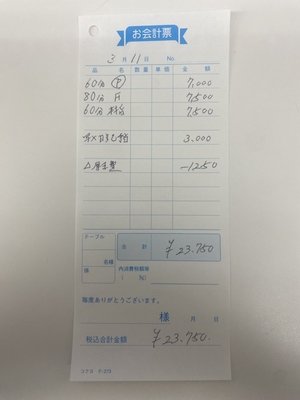 お会計票
3月11日 No
品 名 数量 単価 金 額
60分 Ⓟ 7,000
80分 7,500
60分 7,500
3,000
-1250
テーブル
名様
係
合 計 ¥23.750
内消費税額等
( %)
毎度ありがとうございます。
様 月 日
税込合計金額 ¥23.750.
コクヨ テ-273